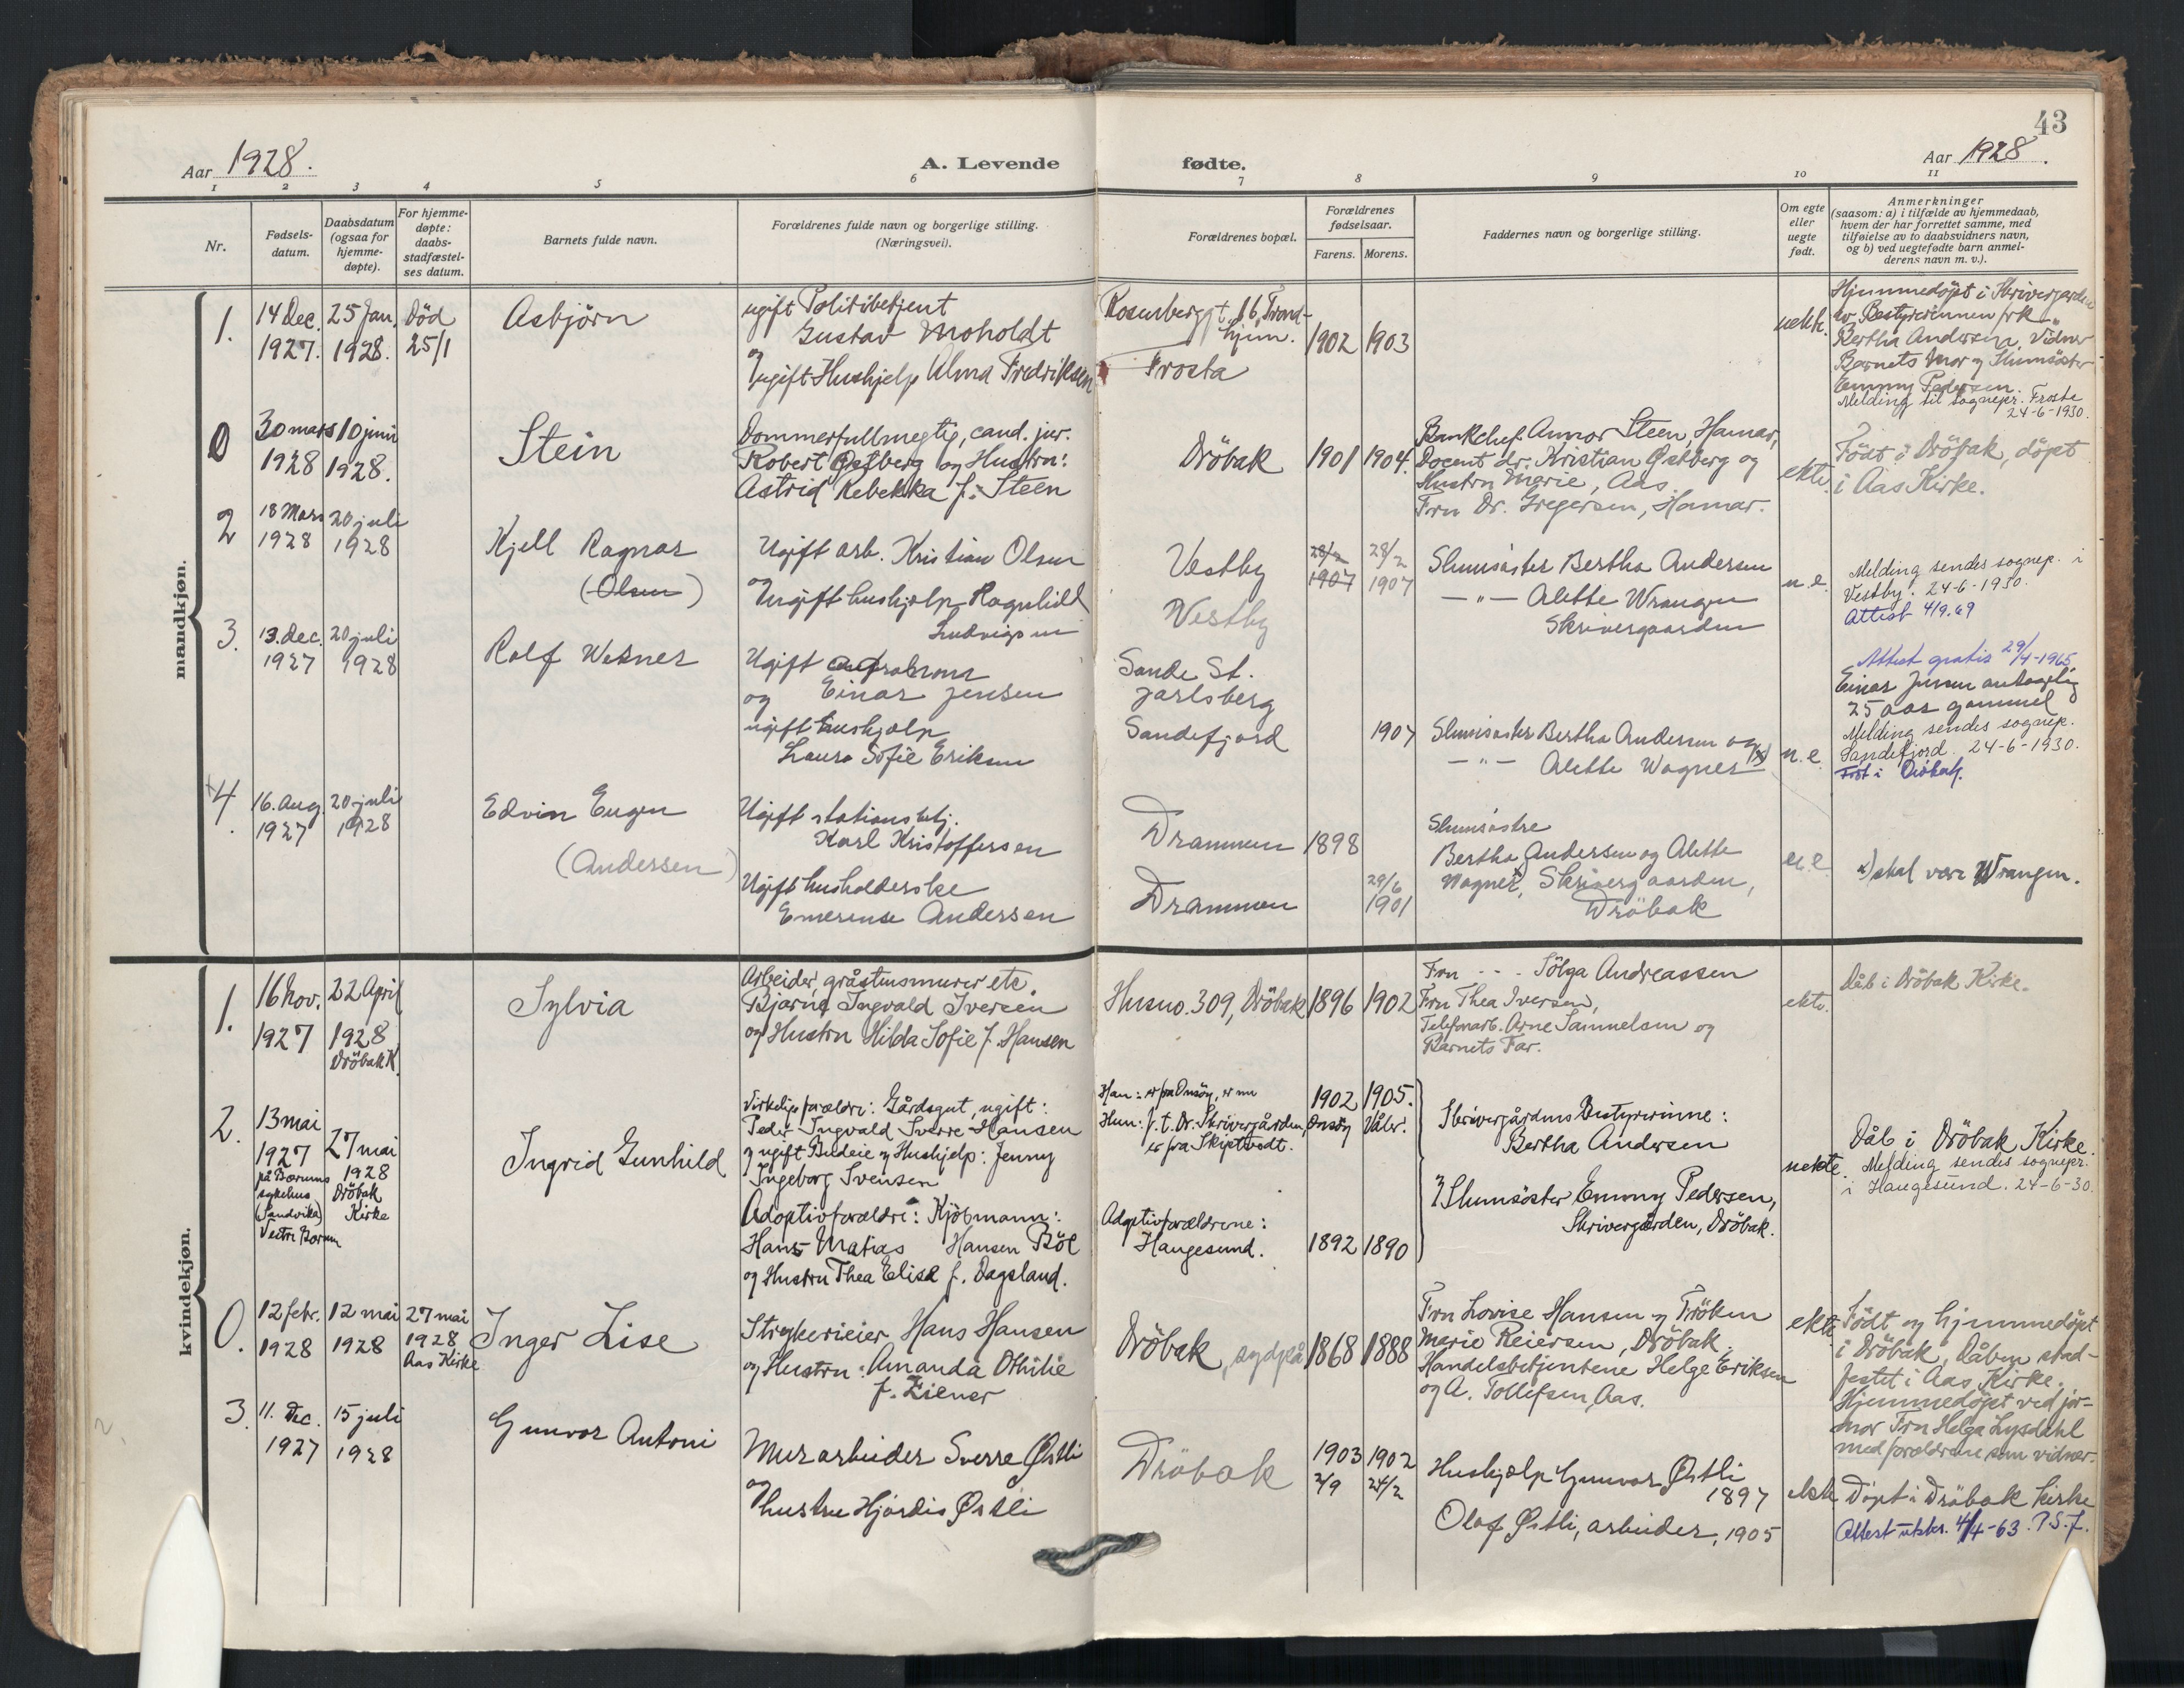 43
Aar 1928.
A. Levende fødte.
Aar 1928.
1 2 3 4 5 6 7 8 9 10 11
Nr.
Fødsels-
datum.
Daabsdatum
(ogsaa for
hjemme-
døpte).
For hjemme-
døpte:
daabs-
stadfæstel-
ses datum.
Barnets fulde navn.
Forældrenes fulde navn og borgerlige stilling.
(Næringsvei).
Forældrenes bopæl.
Forældrenes
fødselsaar.
Farens. Morens.
Faddernes navn og borgerlige stilling.
Om egte
eller
uegte
født.
Anmerkninger
(saasom: a) i tilfælde av hjemmedaab,
hvem der har forrettet samme, med
tilføielse av to daabsvidners navn,
og b) ved uegtefødte barn anmel-
derens navn m. v.).
mandkjøn.
1.
14 Dec.
1927.
25 Jan.
1928.
Död
25/1
Asbjörn
ugift Politibetjent
Gustav Moholdt
og
ugift Hushjelp Alma Fredriksen
Rosenbergt. 16, Trond-
hjem.
Frosta
1902 1903
uekte.
Hjemmedöpt i Skrivergarden
av Bestyrerinnen frk
Bertha Andersen. Vidner
Barnets Mor og Slumsöster
Emmy Pedersen.
Melding til sognepr. Frosta
24-6-1930.
0
30 mars
1928
10 juni
1928.
Stein
Dommerfullmegtig, cand. jur.
Robert Østberg og Hustru:
Astrid Rebekka f. Steen
Dröbak
1901 1904.
Bankchef Annar Steen, Hamar,
Docent dr. Kristian Østberg og
Hustru Marie, Aas
Fru Dr. Gregersen, Hamar.
ekte.
Födt i Dröbak, döpt
i Aas Kirke.
2
18 Mars
1928
20 juli
1928
Kjell Ragnar
(Olsen)
Ugift arb. Kristian Olsen
og
Ungift hushjelp Ragnhild
Ludvigsen
Vestby
Vestby
28/2
1907
28/2
1907
Slumsöster Bertha Andersen
—"— Alette Wrangen
Skrivergaarden
u. e.
Melding sendes sognep. i
Vestby. 24-6-1930.
Attest 4/9.69
3.
13. dec.
1927
20 juli
1928
Rolf Werner
Ugift
og Einar Jensen
ugift hushjelp
Laura Sofie Eriksen
Sande St.
Jarlsberg
Sandefjord
1907
Slumsöster Bertha Andersen og
—"— Alette Wagner (x)
u. e.
Attest gratis 29/4-1965
Einar Jensen antagelig
25 aar gammel
Melding sendes sognep.
Sandefjord. 24-6-1930.
Född i Dröbak.
4.
16. Aug.
1927
20 juli
1928
Edvin Eugen
(Andersen)
Ugift stationsbetj.
Karl Kristoffersen
Ugift husholderske
Emerense Andersen
Drammen
Drammen
1898
29/6
1901
Slumsöstre
Bertha Andersen og Alette
Wagner, Skrivergaarden,
Dröbak
u. e.
x) skal være Wrangen.
kvindekjøn.
1.
16 Nov.
1927
22 April
1928
Dröbak K.
Sylvia
Arbeider, gråstensmurer etc.
Bjarne Ingvald Iversen
og Hustru Hilda Sofie f. Hansen
Husno. 309, Dröbak
1896 1902
Fru - - - Sölga Andreassen
Fru Thea Iversen,
Telefonarb. Arne Samuelsen og
Barnets Far.
ekte.
Dåb i Dröbak Kirke.
2.
13 mai
1927
på Bærums
sykehus
(Sandvika)
Vestre Bærum
27 mai
1928
Dröbak
Kirke
Ingrid Gunhild
Virkelige forældre: Gårdsgut, ugift:
Peder Ingvald Sverre Hansen
og ugift Budeie og Hushjelp: Jenny
Ingeborg Svensen
Adoptivforældre: Kjöbmann:
Hans Matias Hansen Böe
og Hustru Thea Elise f. Dagsland.
Han: er fra Onsöy, er nu
Hun: f. t. Dr. Skrivergården,
er fra Skiptvedt.
Adoptivforældrene:
Haugesund.
1902 1905.
Onsöy Våler.
1892 1890
Skrivergårdens Bestyrerinne:
Bertha Andersen
og Slumsöster Emmy Pedersen,
Skrivergården, Dröbak.
uekte
Dåb i Dröbak Kirke.
Melding sendes sognepr.
i Haugesund. 24-6-30.
0.
12 febr.
1928
12 mai
1928
27 mai
1928
Aas Kirke
Inger Lise
Strykerieier Hans Hansen
og Hustru: Amanda Othilie
f. Ziener
Dröbak, sydpå
1868 1888
Fru Lovise Hansen og Fröken
Marie Reiersen, Dröbak,
Handelsbetjentene Helge Eriksen
og A. Tollefsen, Aas.
ekte
Födt og hjemmedöpt
i Dröbak, Dåben stad-
festet i Aas Kirke.
Hjemmedöpt ved jor-
mor Fru Helga Lysdahl
med forældrene som vidner.
3.
11. Dec.
1927
15 juli
1928
Gunvor Antoni
Murarbeider Sverre Østli
og
hustru Hjördis Østli
Dröbak
1903 1902
2/9 24/2
Hushjelp Gunvor Østli
1897
Olaf Østli, arbeider, 1905
ekte
Döpt i Dröbak kirke
Attest utskr. 4/4-63. P.S.f.
2.